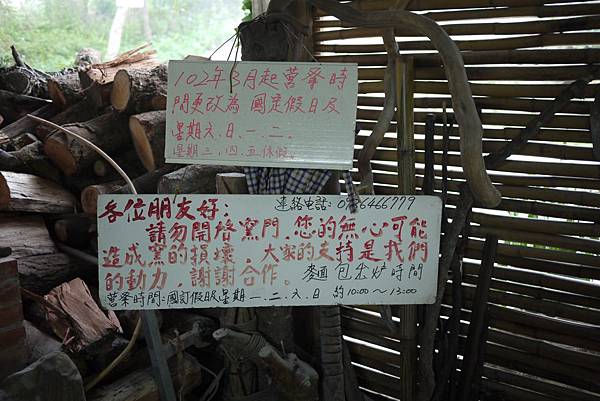 102年3月起營業時
門更改為 國定假日及
星期六、日、一、二。
星期三、四、五休假。
各位朋友好：
連絡電話：0936466779
請勿開啓窯門，您的無心可能
造成窯的損壞，大家的支持是我們
的動力，謝謝合作。
麥迪包出爐時間
營業時間：國訂假日及星期一、二、六、日 約10:00～13:00